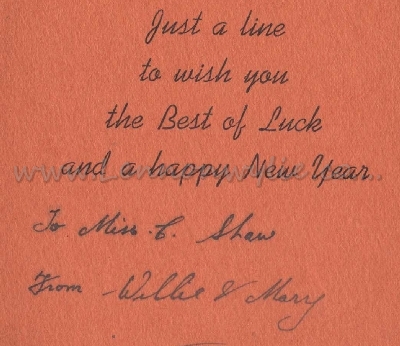 Just a line
to wish you
the Best of Luck
and a happy New Year
To Miss C. Shaw
From Willie & Mary